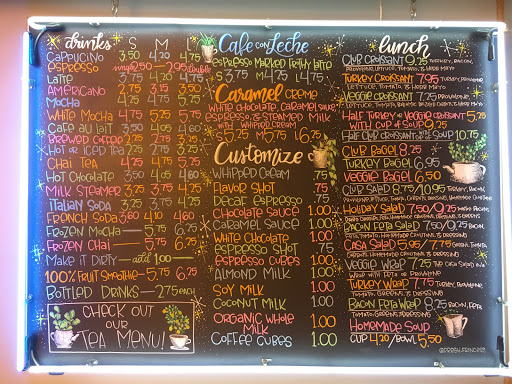 drinks S M L
Cappuccino 3.50 4.20 4.75
Espresso single 2.50 — 2.95 double
Latte 3.75 4.20 4.75
Americano 2.75 3.15 3.50
Mocha 4.25 4.75 5.75
White Mocha 4.75 5.25 5.75
Cafe au lait 3.50 4.05 4.60
Brewed Coffee 2.25
Hot or Iced Tea
Chai Tea 4.25 4.75 5.25
Hot Chocolate 3.50 4.05 4.60
Milk Steamer 3.25 3.75 4.25
Italian Soda 3.25 3.75 4.25
French Soda 3.60 4.10 4.60
Frozen Mocha — 5.75 6.25
Frozen Chai — 5.75 6.25
Make it Dirty — add 1.00
100% Fruit Smoothie — 5.75 6.25
Bottled Drinks — 2.75 each
Check out
our
Tea Menu!
Cafe con Leche
Espresso Marked Frothy Latte
S 3.75 M 4.25 L 4.75
Caramel Creme
White Chocolate, Caramel Sauce,
Espresso & Steamed Milk
with Whipped Cream
S 5.25 M 5.75 L 6.25
Customize
Whipped Cream .75
Flavor Shot .75
Decaf Espresso .75
Chocolate Sauce 1.00
Caramel Sauce 1.00
White Chocolate 1.00
Espresso Shot .75
Espresso Cubes 1.00
Almond Milk 1.00
Soy Milk 1.00
Coconut Milk 1.00
Organic Whole
Milk 1.00
Coffee Cubes 1.00
lunch
Club Croissant 9.25 Turkey, Bacon,
Provolone, Lettuce, Tomato, & Herb Mayo
Turkey Croissant 7.95 Turkey,
Lettuce, Tomato, & Herb Mayo
Veggie Croissant 7.25 Provolone,
Half Turkey or Veggie Croissant 5.75
with Cup of Soup 9.25
Half Club Croissant with Soup 10.75
Club Bagel 8.25
Turkey Bagel 6.95
Veggie Bagel 6.50
Club Salad 8.75/10.95 Turkey, Bacon,
Holiday Salad 7.50/9.25
Bacon Feta Salad 7.50/9.25 Bacon,
Casa Salad 5.95/7.75
Veggie Wrap 7.25 The Casa Salad in a
Wrap with Feta or Provolone
Turkey Wrap 7.75 Turkey, Provolone,
Tomato, Greens, & Dressing
Bacon Feta Wrap 8.25 Bacon, Feta,
Tomato, Greens, & Dressing
Homemade Soup
Cup 4.20/Bowl 5.50